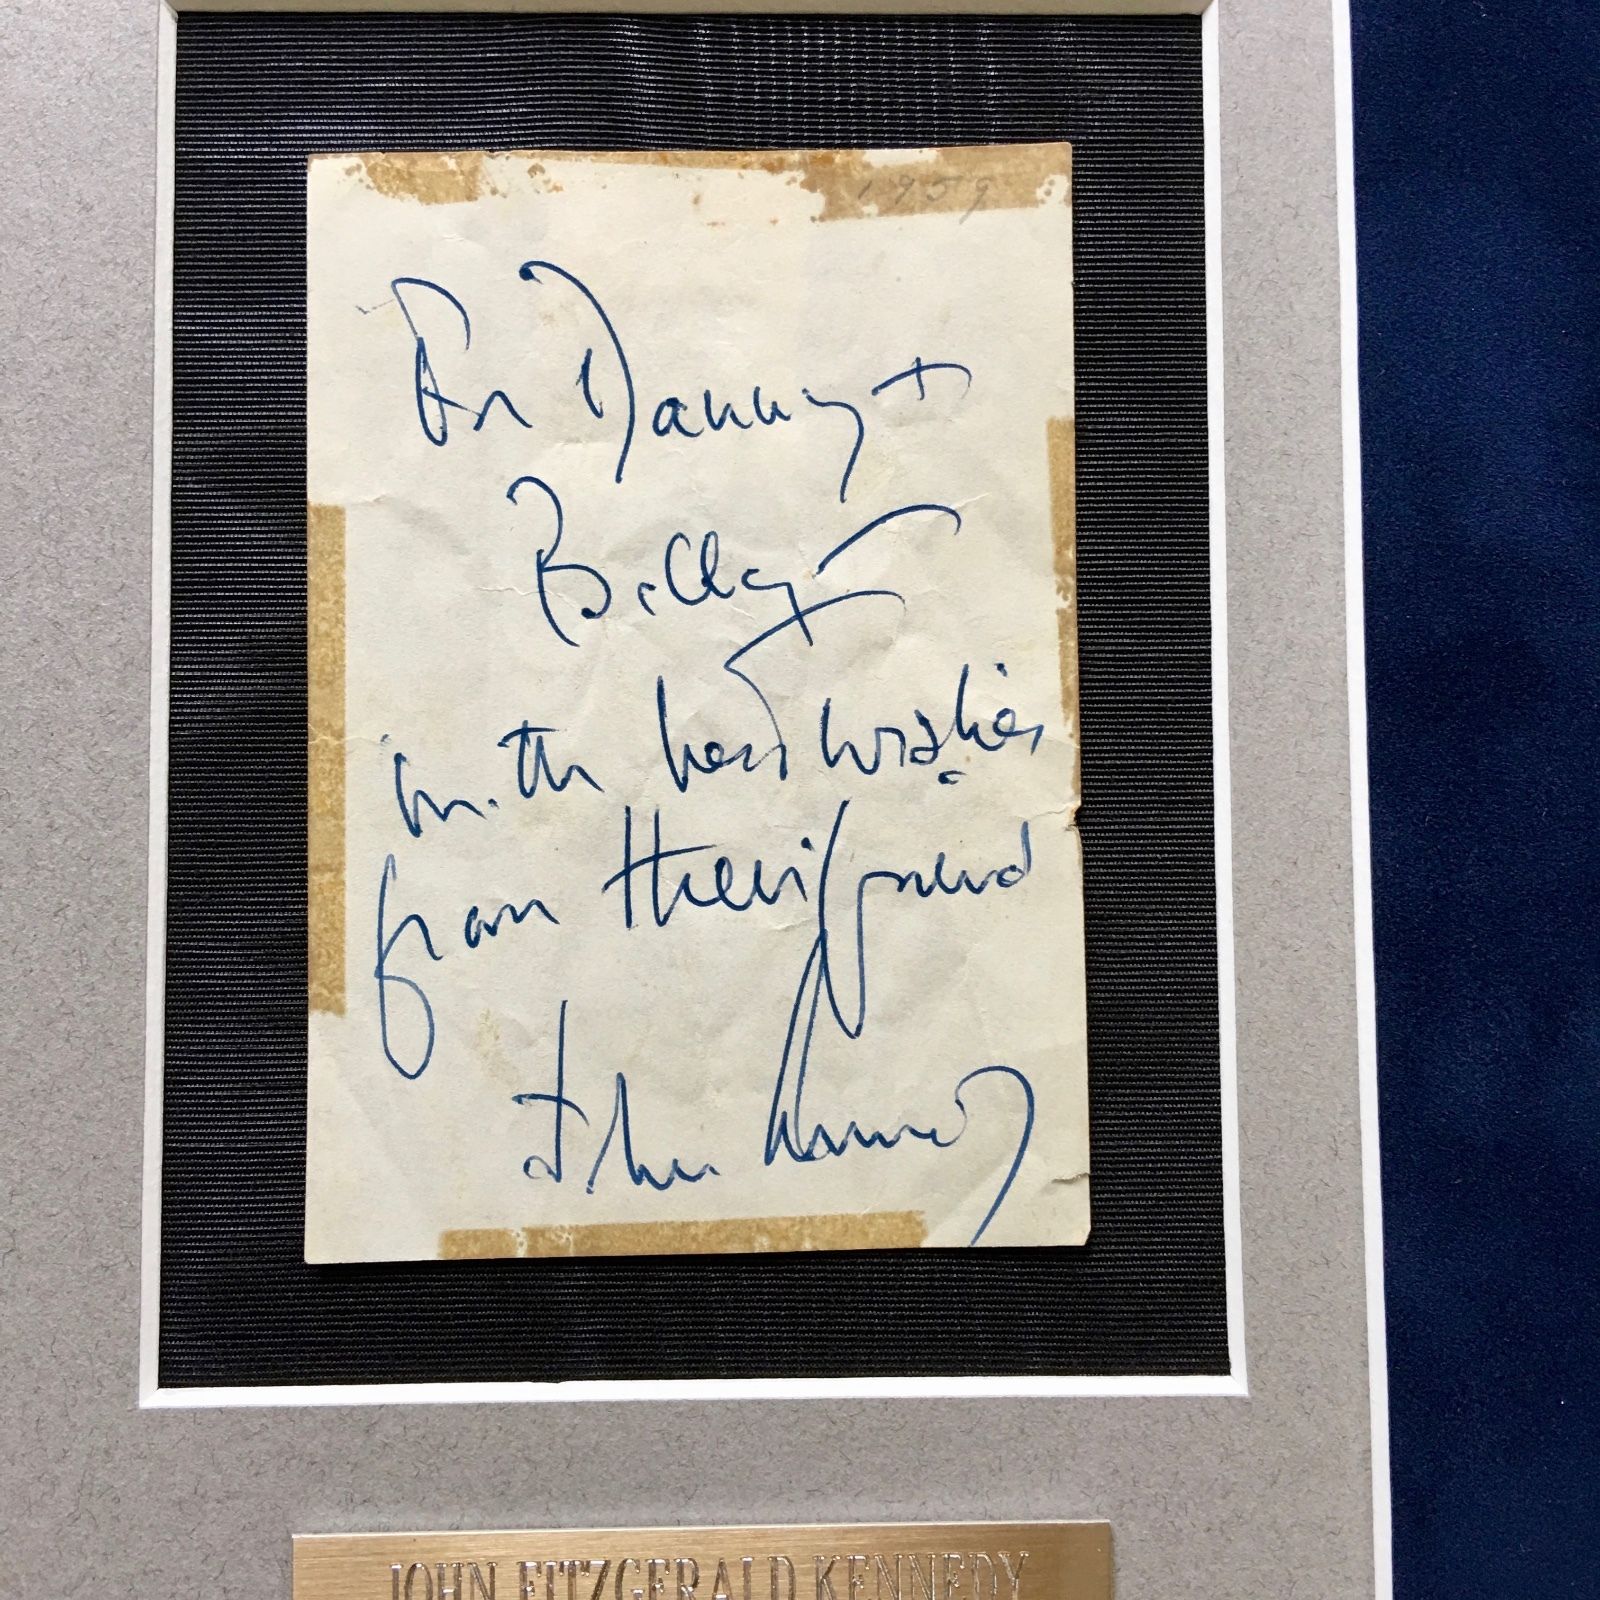 1959
For Danny +
Billy
with best wishes
from their friend
John Kennedy
JOHN FITZGERALD KENNEDY